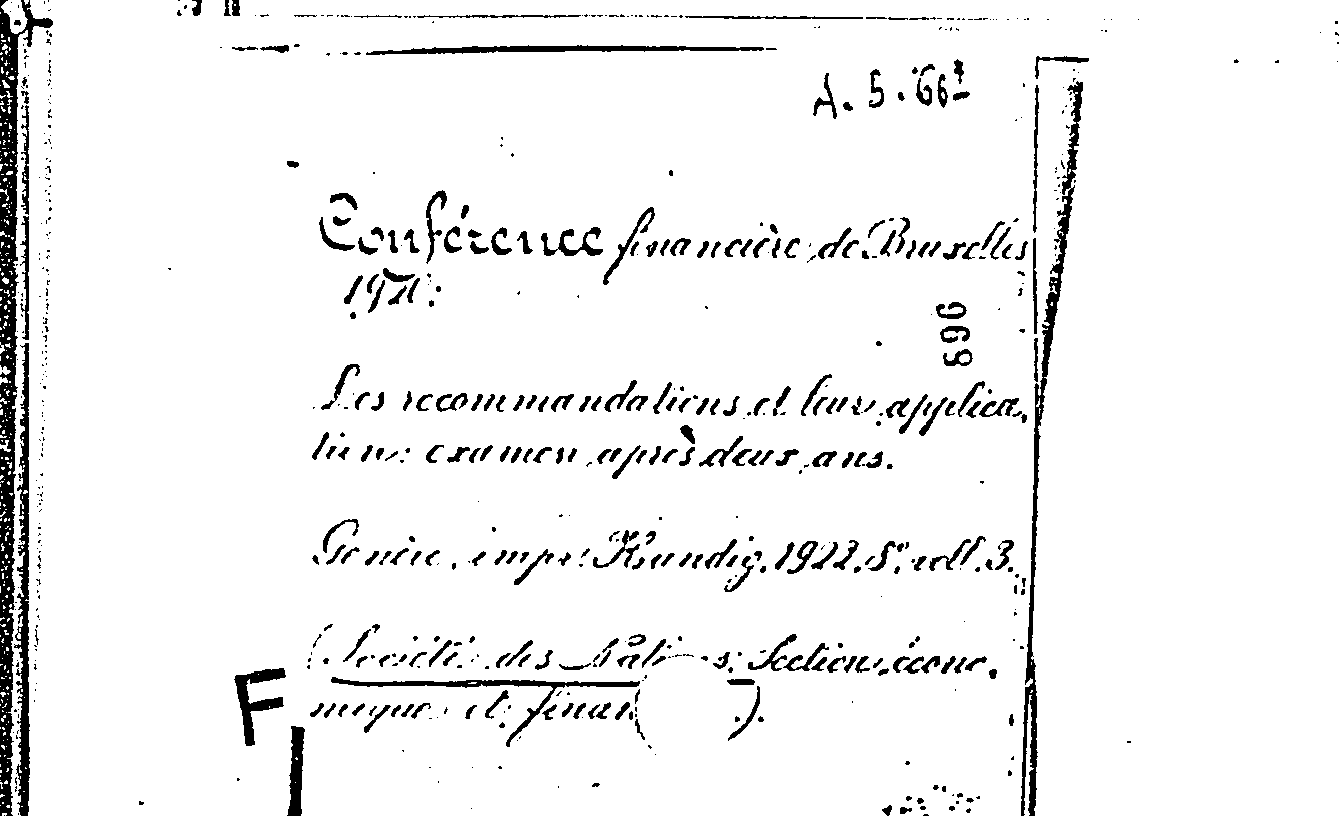 A. 5. 66
Conférence financière de Bruxelles
1920:
Les recommandations et leur applica-
tion: examen après deux ans.
Genève, impr. Kundig, 1922. 8°. voll. 3.
(Société des Nations: Section écono-
mique et finan ).
696
F